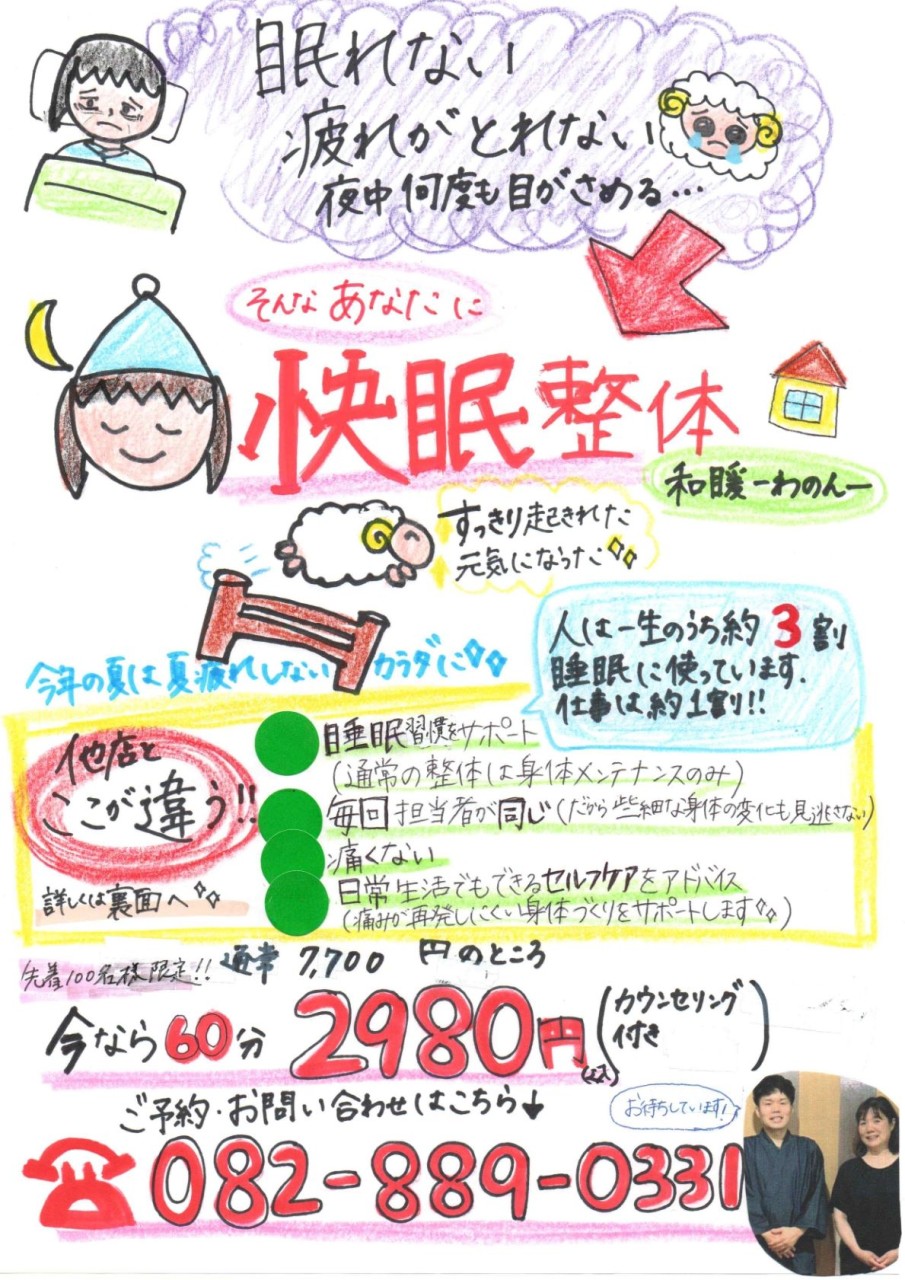 眠れない
疲れがとれない
夜中何度も目がさめる…
そんなあなたに
快眠整体
和暖ーわのんー
すっきり起きれた
元気になった
人は一生のうち約3割
睡眠に使っています.
仕事は約1割!!
今年の夏は夏疲れしない カラダに
他店と
ここが違う!!
詳しくは裏面へ
睡眠習慣をサポート
(通常の整体は身体メンテナンスのみ)
毎回担当者が同じ(だから些細な身体の変化も見逃さない)
痛くない
日常生活でもできるセルフケアをアドバイス
(痛みが再発しにくい身体づくりをサポートします)
先着100名様限定!! 通常 7,700 円のところ
今なら60分 2980円(カウンセリング
付き)
ご予約・お問い合わせはこちら↓
お待ちしています!
082-889-0331